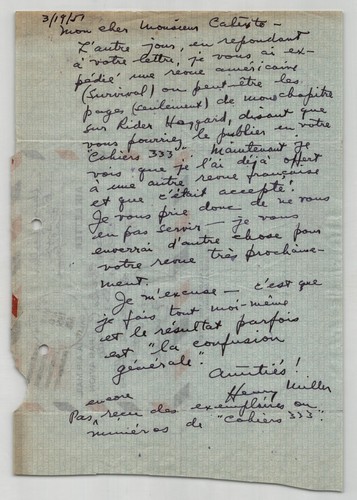 3/19/51
Mon cher Monsieur Calixto –
L'autre jour, en repondant
à votre lettre, je vous ai ex-
pédié une revue américaine
(Survival) ou peut-être les
pages (seulement) de mon chapitre
sur Rider Haggard, disant que
vous pourriez le publier en votre
"Cahiers 333". Maintenant je
vois que je l'ai déjà offert
à une autre revue française
et que c'était accepté!
Je vous prie donc de ne vous
en pas servir — je vous
enverrai d'autre chose pour
votre revue très prochaine-
ment.
Je m'excuse — c'est que
je fais tout moi-même
et le résultat parfois
est "la confusion
générale".
Amitiés!
Henry Miller
encore
Pas reçu des exemplaires ou
numéros de "Cahiers 333".